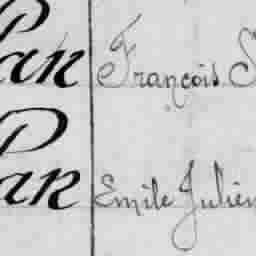 Par François S
Par Emile Julien